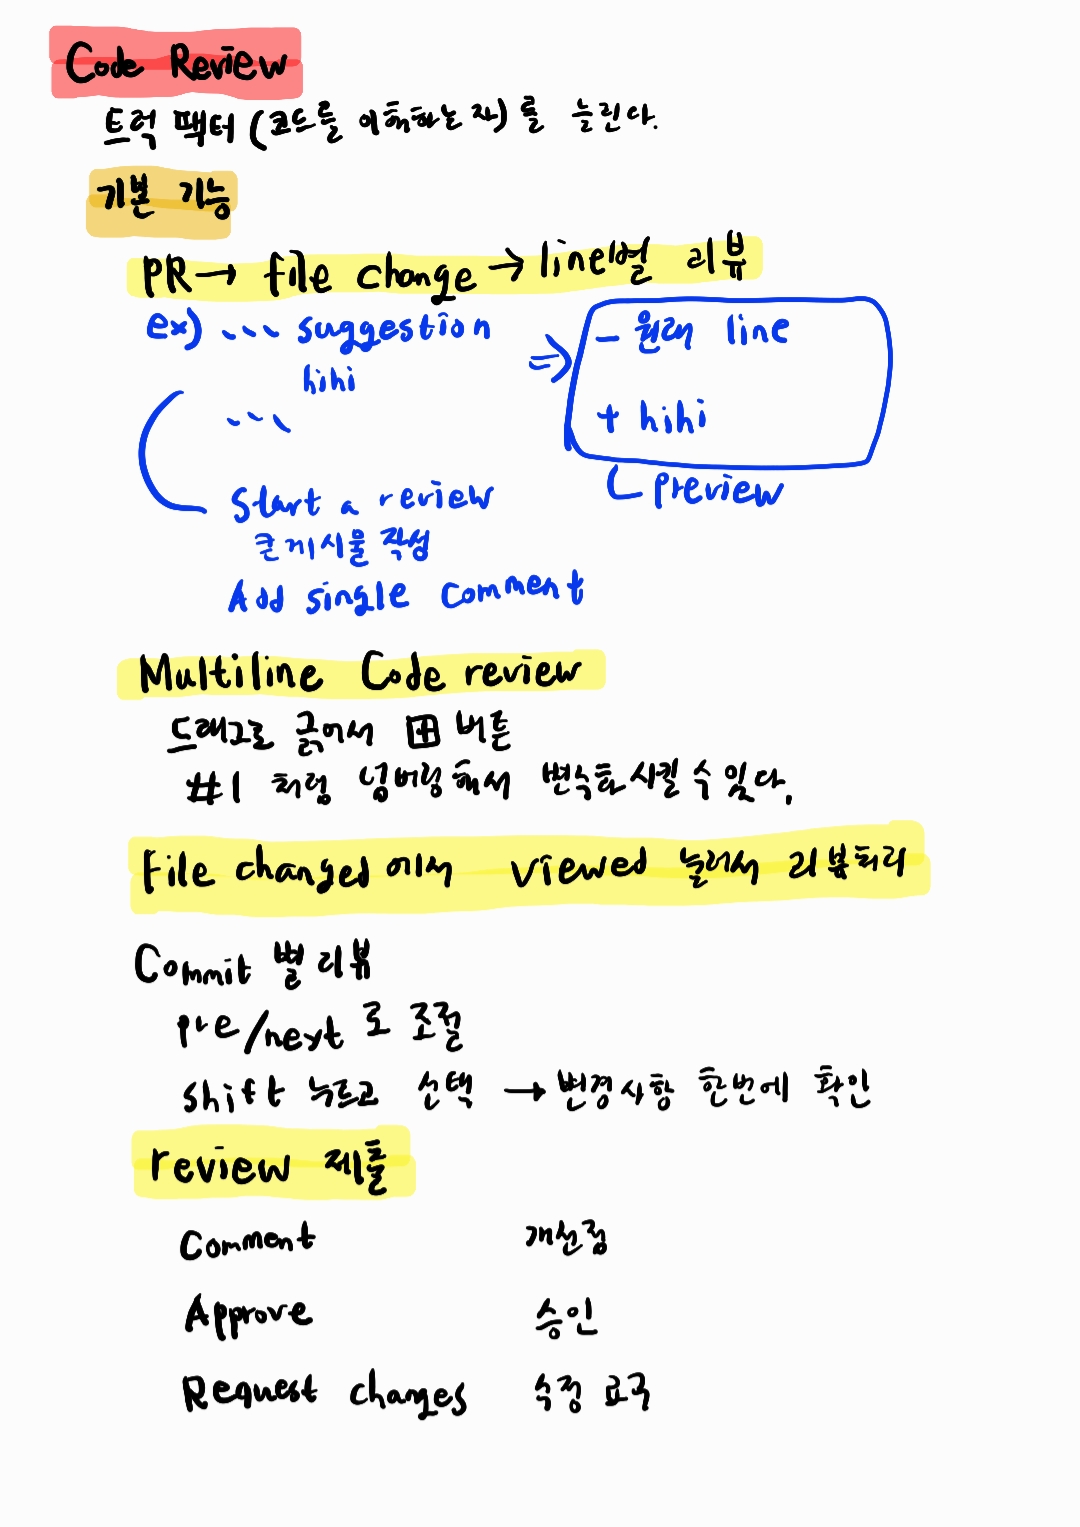 Code Review
트럭 팩터 (코드를 이해하는 자)를 늘린다.
기본 기능
PR → file change → line별 리뷰
ex) ``` suggestion
hihi
```
⇒ - 원래 line
+ hihi
preview
Start a review
큰 게시물 작성
Add single comment
Multiline Code review
드래그로 긁어서 ⊞ 버튼
#1 처럼 넘버링해서 변수화시킬 수 있다.
File changed에서 viewed 눌러서 리뷰처리
Commit 별 리뷰
pre/next로 조절
shift 누르고 선택 → 변경사항 한번에 확인
review 제출
Comment 개선점
Approve 승인
Request changes 수정 요구